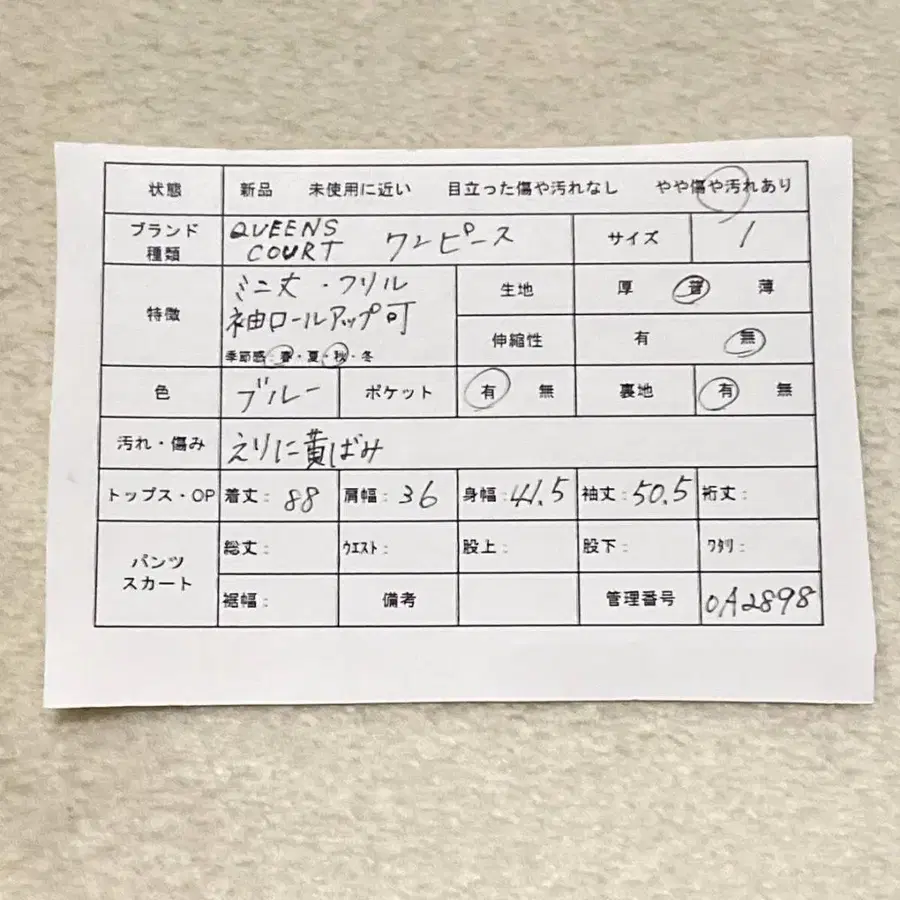 状態 新品 未使用に近い 目立った傷や汚れなし やや傷や汚れあり
ブランド 種類 QUEENS COURT ワンピース サイズ 1
特徴 ミニ丈・フリル 生地 厚 普 薄
袖ロールアップ可 伸縮性 有 無
季節感:春・夏・秋・冬
色 ブルー ポケット 有 無 裏地 有 無
汚れ・傷み えりに黄ばみ
トップス・OP 着丈: 88 肩幅: 36 身幅: 41.5 袖丈: 50.5 裄丈:
パンツ スカート 総丈: ウエスト: 股上: 股下: ワタリ:
裾幅: 備考 管理番号 0A2898